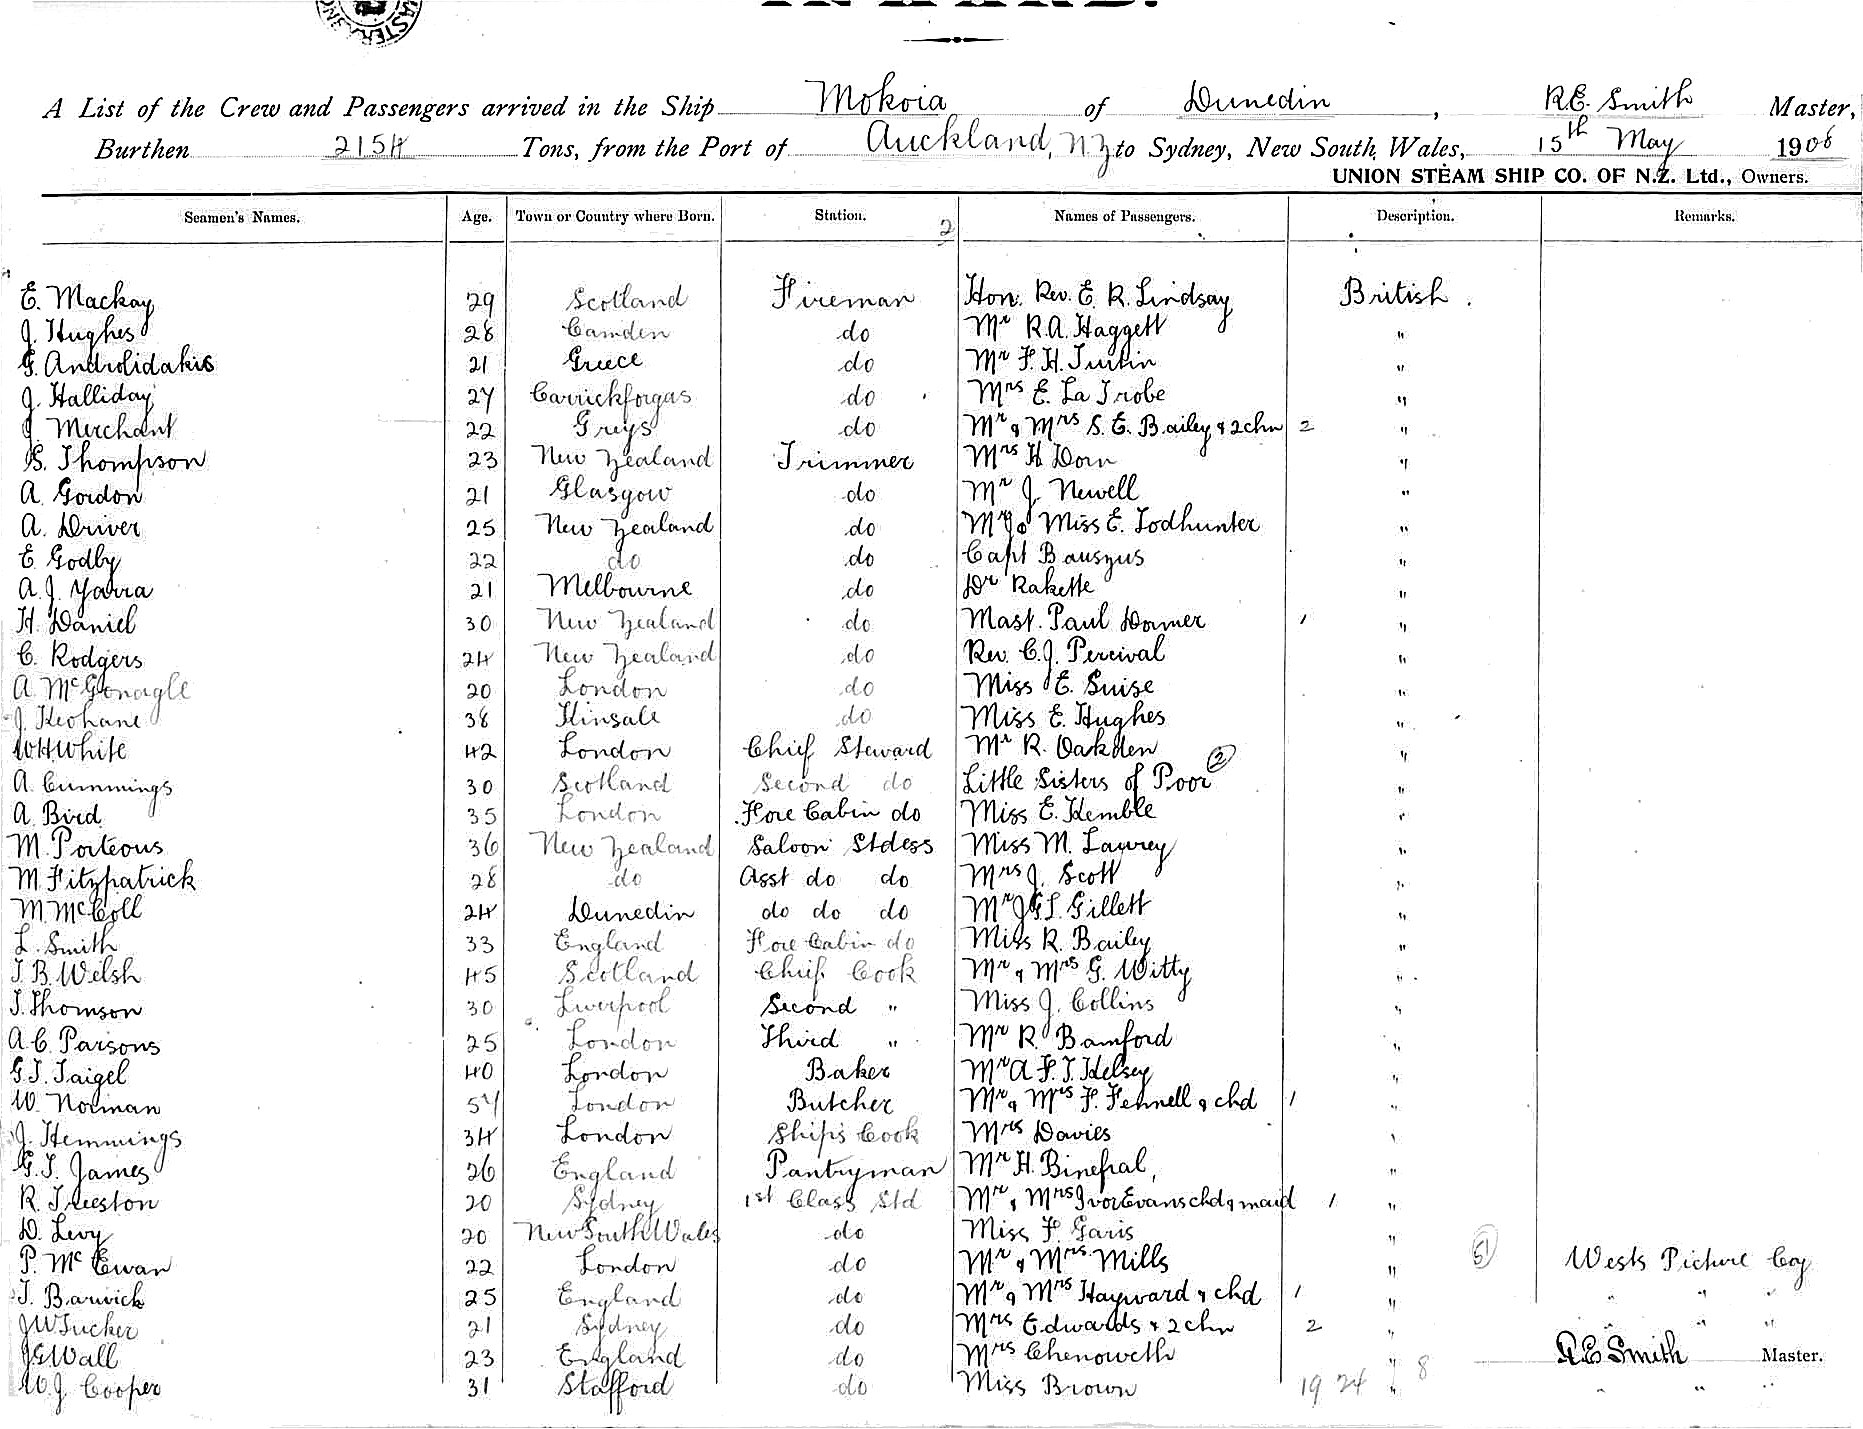 A List of the Crew and Passengers arrived in the Ship Mokoia of Dunedin, R.E. Smith Master,
Burthen 2154 Tons, from the Port of Auckland, NZ to Sydney, New South Wales, 15th May 1908
UNION STEAM SHIP CO. OF N.Z. Ltd., Owners.
Seamen's Names. Age. Town or Country where Born. Station. Names of Passengers. Description. Remarks.
2
E. Mackay 29 Scotland Fireman Hon. Rev. E. R. Lindsay British.
J. Hughes 28 Camden do Mr R.A. Haggett "
G. Androlidakis 21 Greece do Mr F. H. "
J. Halliday 27 Carrickforgas do Mrs E. La Trobe "
J. Merchant 22 Greys do Mr & Mrs S. E. Bailey & 2 chn 2 "
S. Thompson 23 New Zealand Trimmer Mrs H Dorn "
A. Gordon 21 Glasgow do Mr J. Newell "
A. Driver 25 New Zealand do Miss E. Todhunter "
E Godby 22 do do Capt Bauszus "
A. J. Yarra 21 Melbourne do Dr Rakette "
H. Daniel 30 New Zealand do Mast. Paul Dormer 1 "
C. Rodgers 24 New Zealand do Rev. C.J. Percival "
A. McGonagle 20 London do Miss E. Suise "
J. Keohane 38 Kinsale do Miss E. Hughes "
W H White 42 London Chief Steward Mr R. Oakden "
A. Cummings 30 Scotland Second do Little Sisters of Poor 2 "
A. Bird 35 London Fore Cabin do Miss E. Kemble "
M. Porteous 36 New Zealand Saloon Stdess Miss M. Lawrey "
M Fitzpatrick 28 do Asst do do Mrs J. Scott "
M. McColl 24 Dunedin do do do Mr J G.S. Gillett "
L. Smith 33 England Fore Cabin do Miss R. Bailey "
J. B. Welsh 45 Scotland Chief Cook Mr & Mrs G. Witty "
J. Thomson 30 Liverpool Second " Miss J. Collins "
A. C. Parsons 25 London Third " Mr R. Bamford "
G. T. Taigel 40 London Baker Mr A F. T. Kelsey "
W. Norman 57 London Butcher Mr & Mrs F. Fennell & chd 1 "
J. Hemmings 34 London Ship's Cook Mrs Davies "
G. T. James 26 England Pantryman Mr H. "
R. Treeston 20 Sydney 1st Class Std Mr & Mrs Ivor Evans chd & maid 1 "
D. Levy 20 New South Wales do Miss F. Garis "
P. McEwan 22 London do Mr & Mrs Mills " 51 Wests Picture Coy
T. Barwick 25 England do Mr & Mrs Hayward & chd 1 " " " "
J W Tucker 21 Sydney do Mrs Edwards & 2 chn 2 " " " "
J G Wall 23 England do Mrs Chenoweth " 8 R E Smith Master.
W. J. Cooper 31 Stafford do Miss Brown 19 24 " " " "